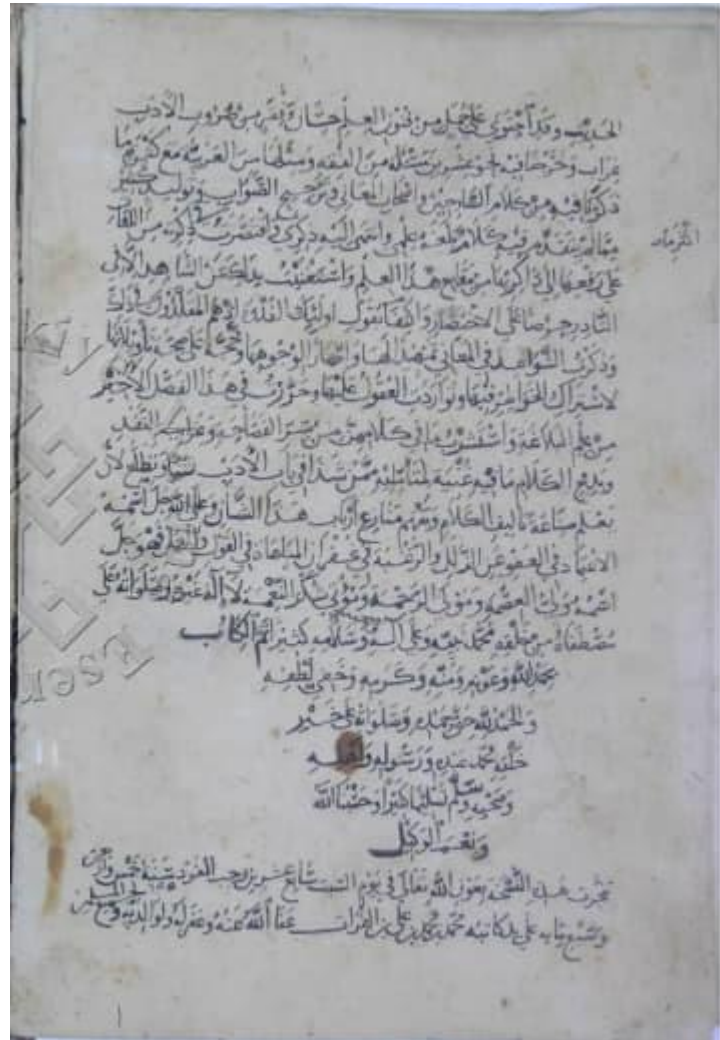 الحديث وقد احتوى على جمل من فنون العلم حسان وافر من ضروب الأدب
غراب وخرجنا فيه نحو عشرين مسئلة من الفقه ومثلها من العربية مع كثير مما
ذكرنا فيه من كلام الشارحين وانتحال المعاني وترجيح الصواب وتوليد كثير
مما لم يتقدم فيه كلام مبلغه علمي وانتهى اليه ذكرى واقتصرت ذكره من اللغات
على رفعها الى ذاكريها من مقلدي هذا العلم واستغنيت بذلك عن الشاهد الا في
النادر حرصا على الاختصار والتفاتا لقول اولئك القدوة اذ هم المقلدون في ذلك
وذكرت الشواهد في المعاني تمهيدا لها وانتحاء لوجوهها وحجة على صحة تأويلاتها
لاشتراك الخواطر فيها وتوارد العقول عليها وحررت في هذا الفصل الاخير
من علم البلاغة واستثرت ما في كلامهن من سر الفصاحة وغرائب النقد
وبديع الكلام ما فيه غنية لمتأمله ممن شدا في باب الأدب شيئا وتطلع لأن
يعلم صناعة تأليف الكلام ويفهم منازع أرباب هذا الشأن وعلى الله جل اسمه
الاعتماد في العفو عن الزلل والرغبة في غفران في القول والعمل فهو جل
اسمه مولى العصمة ومولى الرحمة ومولى شكر النعمة لا اله غيره وصلواته على
مصطفاه من خلقه محمد نبيه وعلى اله وسلامه كثيرا تم الكتاب
بحمد الله وعونه ومنه وكرمه وخفي لطفه
والحمد لله حق حمده وصلواته على خير
خلقه محمد عبده ورسوله واله
وصحبه وسلم تسليما كثيرا وحسبنا الله
ونعم الوكيل
نجزت هذه النسخة بعون الله تعالى في يوم السبت سابع عشرين رجب الفرد سنة خمس
وسبع مايه على يد كاتبه محمد بن محمد بن علي بن الفرات عفا الله عنه وغفر له ولوالديه ولجميع المسلمين